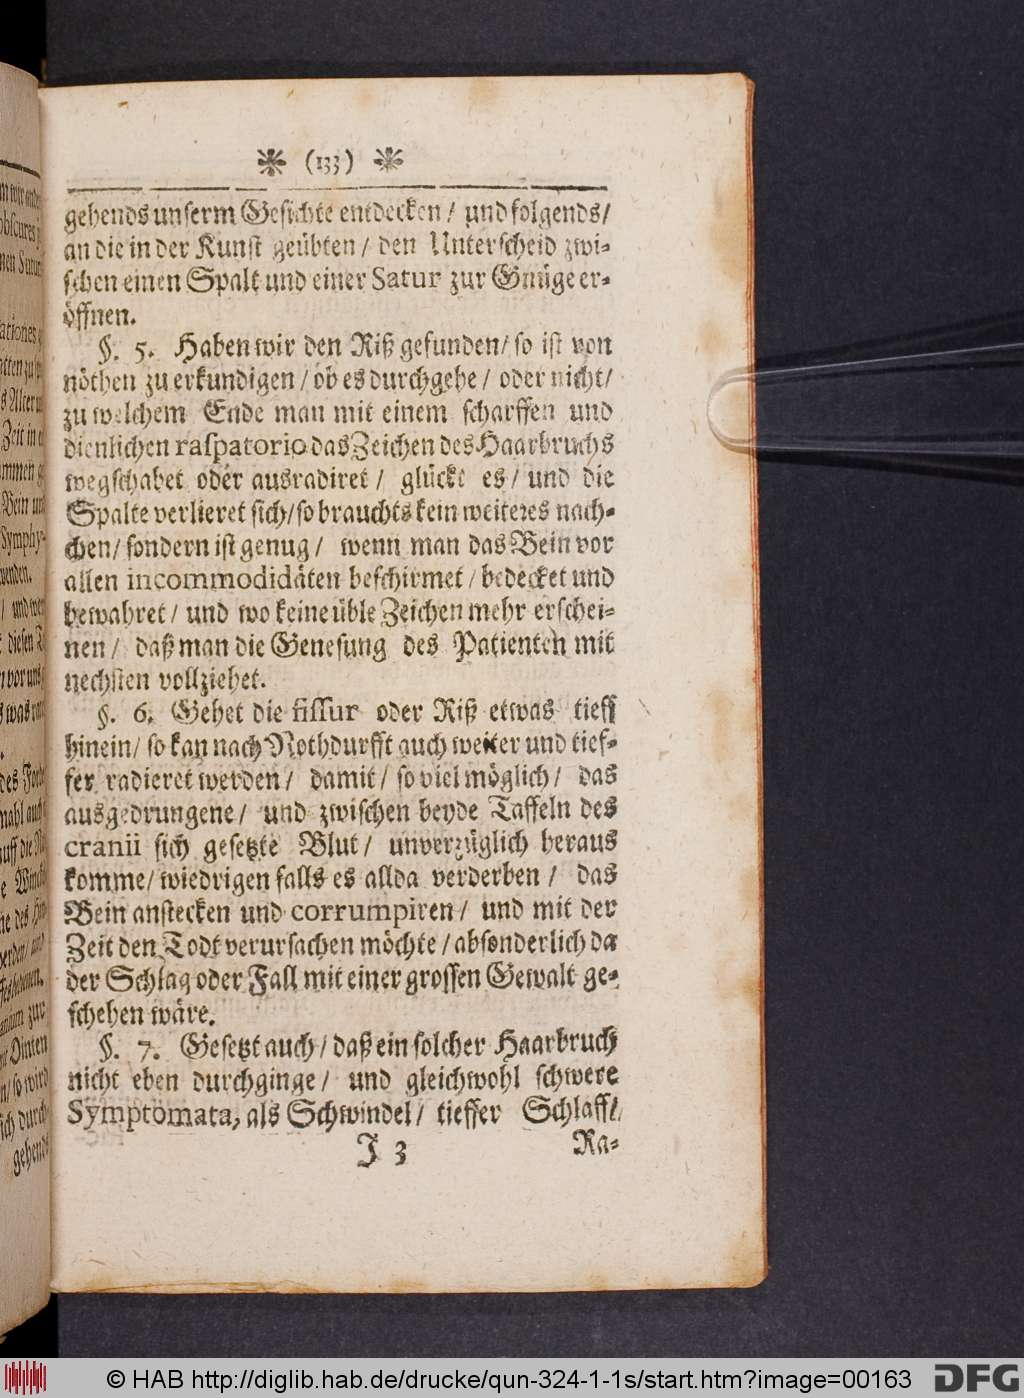 ❋ (133) ❋
gehends unserm Gesichte entdecken / und folgends /
an die in der Kunst geübten / den Unterscheid zwi-
schen einen Spalt und einer Satur zur Gnüge er-
öffnen.
§. 5. Haben wir den Riß gefunden / so ist von
nöthen zu erkundigen / ob es durchgehe / oder nicht /
zu welchem Ende man mit einem scharffen und
dienlichen raspatorio das Zeichen des Haarbruchs
wegschabet oder ausradiret / glückt es / und die
Spalte verlieret sich / so brauchts kein weiteres nach-
chen / sondern ist genug / wenn man das Bein vor
allen incommodidäten beschirmet / bedecket und
bewahret / und wo keine üble Zeichen mehr erschei-
nen / daß man die Genesung des Patienten mit
nechsten vollziehet.
§. 6. Gehet die fissur oder Riß etwas tieff
hinein / so kan nach Nothdurfft auch weiter und tief-
fer radieret werden / damit / so viel möglich / das
ausgedrungene / und zwischen beyde Taffeln des
cranii sich gesetzte Blut / unverzüglich heraus
komme / wiedrigen falls es allda verderben / das
Bein anstecken und corrumpiren / und mit der
Zeit den Todt verursachen möchte / absonderlich da
der Schlag oder Fall mit einer grossen Gewalt ge-
schehen wäre.
§. 7. Gesetzt auch / daß ein solcher Haarbruch
nicht eben durchginge / und gleichwohl schwere
Symptomata, als Schwindel / tieffer Schlaff /
J 3 Ra-
© HAB http://diglib.hab.de/drucke/qun-324-1-1s/start.htm?image=00163
DFG